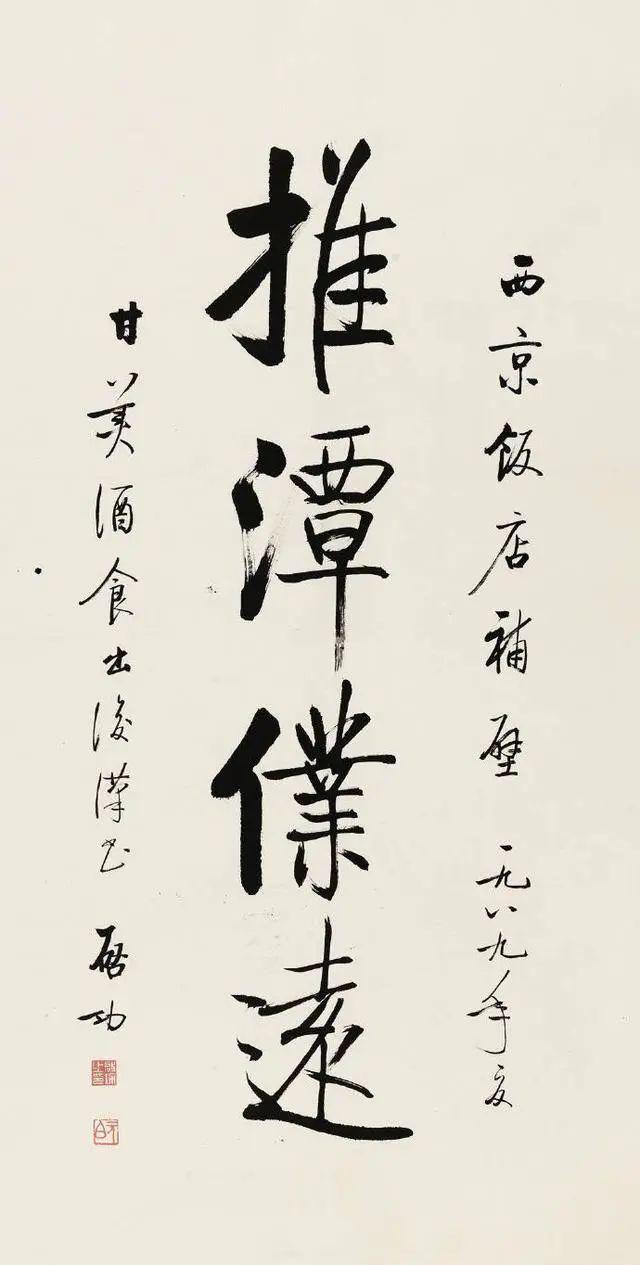 西京飯店補壁 一九八九年夏
推潭僕遠
甘美酒食出後漢書 启功